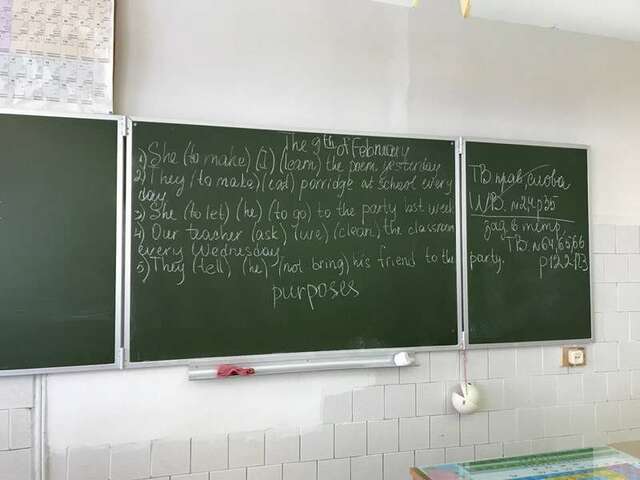 The 9th of February
1) She (to make) (I) (learn) the poem yesterday
2) They (to make) (cat) porridge at school every
day
3) She (to let) (he) (to go) to the party last week
4) Our teacher (ask) (we) (clean) the classroom
every Wednesday
5) They (tell) (he) (not bring) his friend to the
party.
purposes
TB прав, слова
WB. №24 p35
зад в тетр,
TB. №64,65,66
p122-113